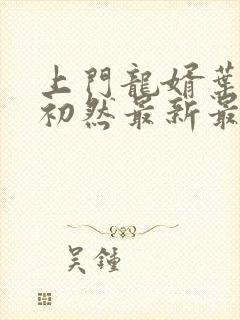 上門龍婿葉
初然最新最
吳鍾